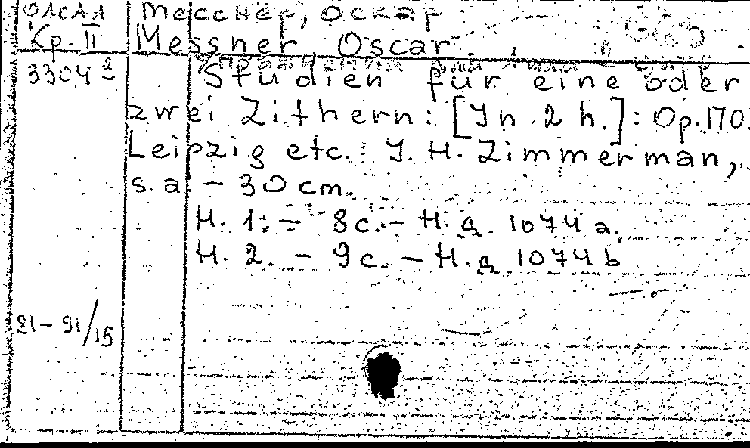 Месснер, Оскар
Кр. II Messner Oscar
Studien für eine oder
zwei Zithern: [In 2 h.]: Op.170.
Leipzig etc.: J. H. Zimmerman,
s.a. - 30 cm.
H. 1. - 8 с. - Н.д. 1074 a.
H. 2. - 9 с. - Н.д 1074 b